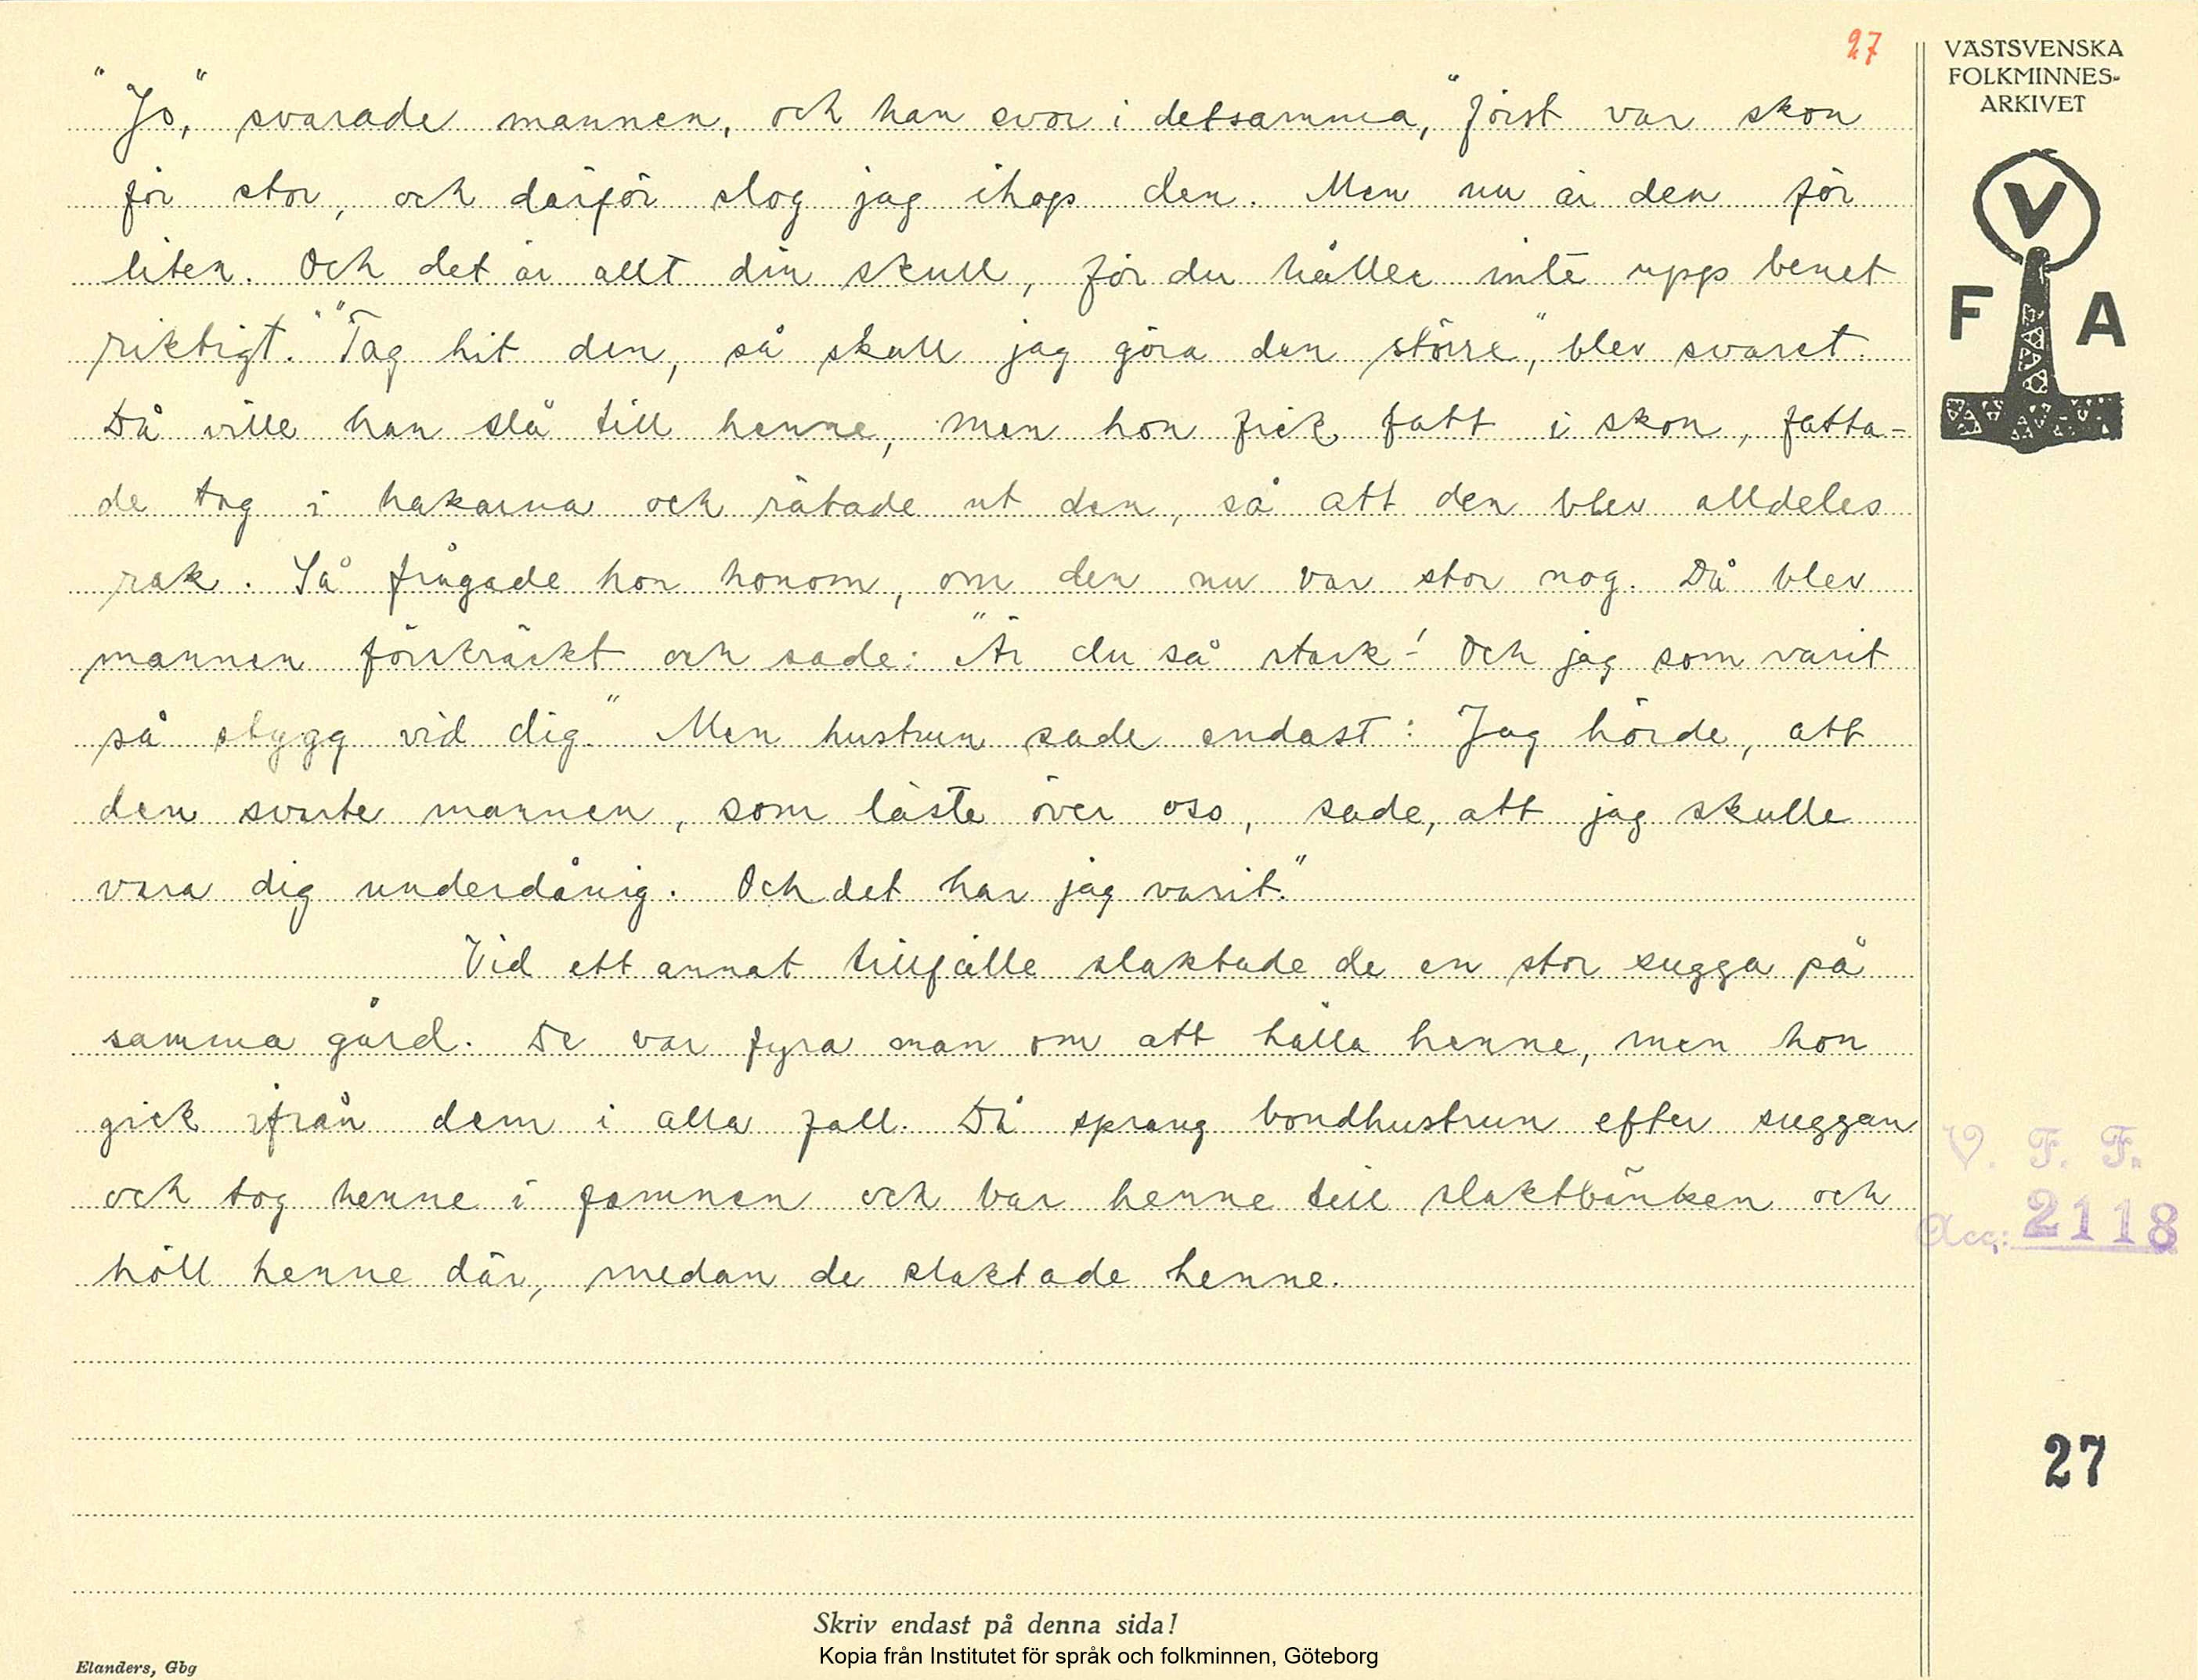 27
VÄSTSVENSKA
FOLKMINNES-
ARKIVET
V
F A
"Jo," svarade mannen, och han svor i detsamma, "först var skon
för stor, och därför slog jag ihop den. Men nu är den för
liten. Och det är allt din skull, för du håller inte upp benet
riktigt." "Tag hit den, så skall jag göra den större," blev svaret.
Då ville han slå till henne, men hon fick fatt i skon, fatta-
de tag i hakarna och rätade ut den, så att den blev alldeles
rak. Så frågade hon honom, om den nu var stor nog. Då blev
mannen förskräckt och sade: "Är du så stark! Och jag som varit
så stygg vid dig." Men hustrun sade endast: Jag hörde, att
den svarte mannen, som läste över oss, sade, att jag skulle
vara dig underdånig. Och det har jag varit."
Vid ett annat tillfälle slaktade de en stor sugga på
samma gård. De var fyra man om att hålla henne, men hon
gick ifrån dem i alla fall. Då sprang bondhustrun efter suggan
och tog henne i famnen och bar henne till slaktbänken och
höll henne där, medan de slaktade henne.
V. F. F.
Acc: 2118
27
Skriv endast på denna sida!
Kopia från Institutet för språk och folkminnen, Göteborg
Elanders, Gbg